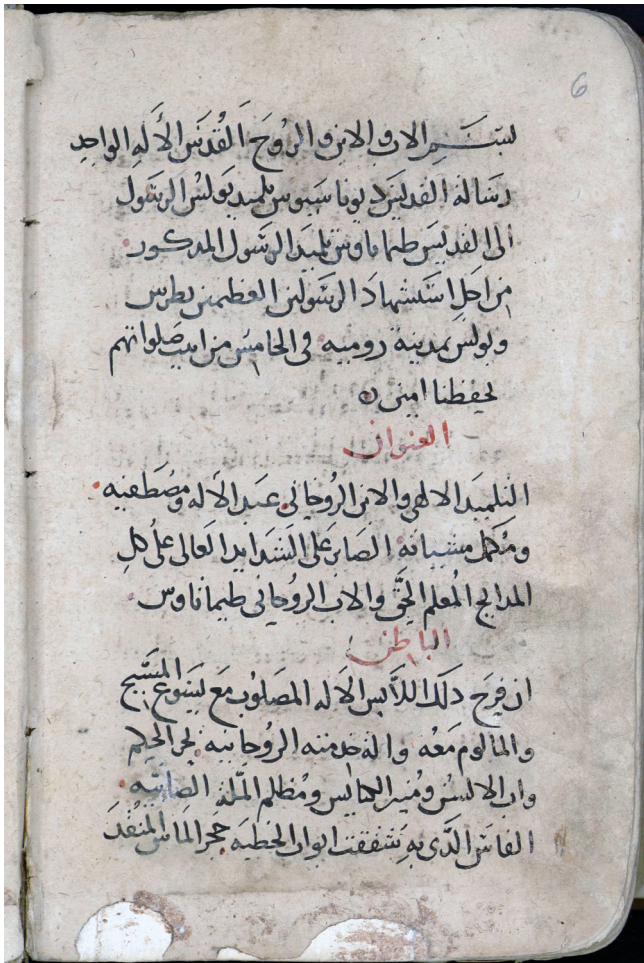 6
بسم الاب والابن والروح القدس الاله الواحد
رساله القديس ديوناسيوس تلميد بولس الرسول
الى القديس طيماتاوس تلميد الرسول المدكور
من اجل استشهاد الرسولين العظيمين بطرس
وبولس بمدينة روميه في الخامس من ابيب صلواتهم
تحفظنا امين
العنوان
التلميد الالاهي والابن الروحاني عبد الاله ومصطفيه
ومكمل مشياته الصابر على الشدايد العالى على كل
المدايح المعلم الحقى والاب الروحاني طيماتاوس
الباطن
ان فرح دلك اللابس الاله المصلوب مع يسوع المسيح
والمالوم معه والة خدمته الروحانيه بحر الحكم
واب الالسن ومنير الكنايس ومظلم الملة الصابيه
الفاس الدى به تشققت ابواب الخطيه حجر الماس